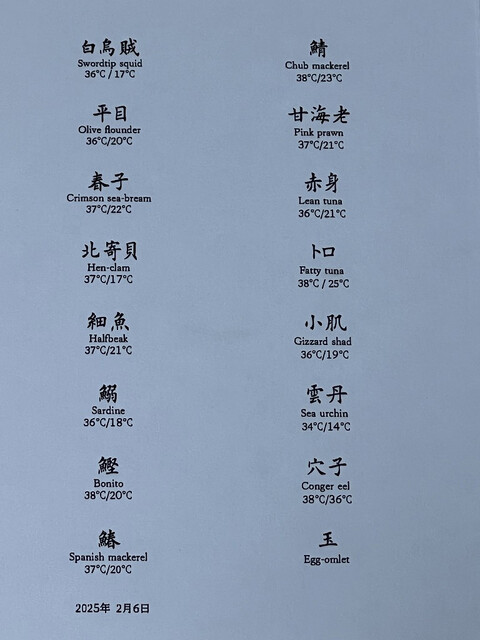 白烏賊
Swordtip squid
36℃ / 17℃
平目
Olive flounder
36℃/20℃
春子
Crimson sea-bream
37℃/22℃
北寄貝
Hen-clam
37℃/17℃
細魚
Halfbeak
37℃/21℃
鰯
Sardine
36℃/18℃
鰹
Bonito
38℃/20℃
鰆
Spanish mackerel
37℃/20℃
2025年 2月6日
鯖
Chub mackerel
38℃/23℃
甘海老
Pink prawn
37℃/21℃
赤身
Lean tuna
36℃/21℃
トロ
Fatty tuna
38℃ / 25℃
小肌
Gizzard shad
36℃/19℃
雲丹
Sea urchin
34℃/14℃
穴子
Conger eel
38℃/36℃
玉
Egg-omlet